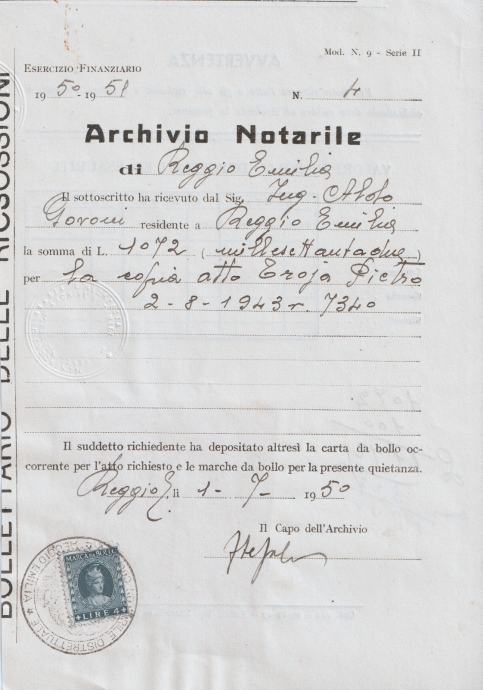 Mod. N. 9 - Serie II
ESERCIZIO FINANZIARIO
1950-1951 N. 4
Archivio Notarile
di Reggio Emilia
Il sottoscritto ha ricevuto dal Sig. Ing. Aldo
Govoni residente a Reggio Emilia
la somma di L. 1072 (millesettantadue)
per la copia atto Eroja Pietro
2-8-1943 r. 7340
Il suddetto richiedente ha depositato altresì la carta da bollo oc-
corrente per l'atto richiesto e le marche da bollo per la presente quietanza.
Reggio E. lì 1-7- 1950
Il Capo dell'Archivio
MARCA DA BOLLO
LIRE 4
DISTRETTUALE
REGGIO EMILIA
BOLLETTARIO DELLE RISCOSSIONI